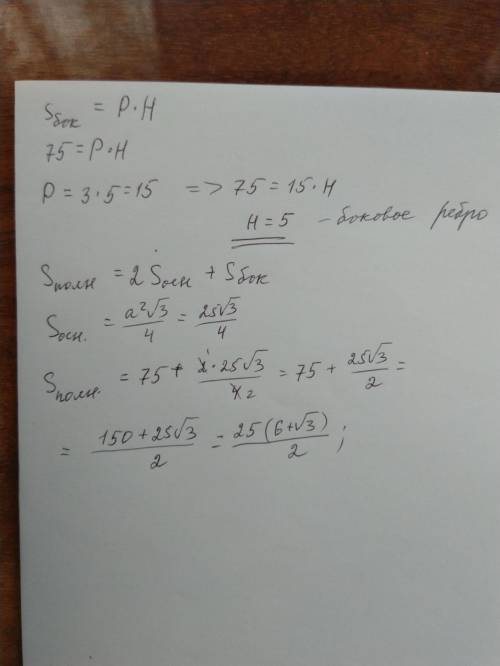 Sбок = P·H
75 = P·H
P = 3·5 = 15 => 75 = 15·H
H = 5 – боковое ребро
Sполн = 2 Sосн + Sбок
Sосн. = a²√3/4 = 25√3/4
Sполн. = 75 + 2·25√3/4 2 = 75 + 25√3/2 =
= 150 + 25√3/2 = 25(6+√3)/2 ;